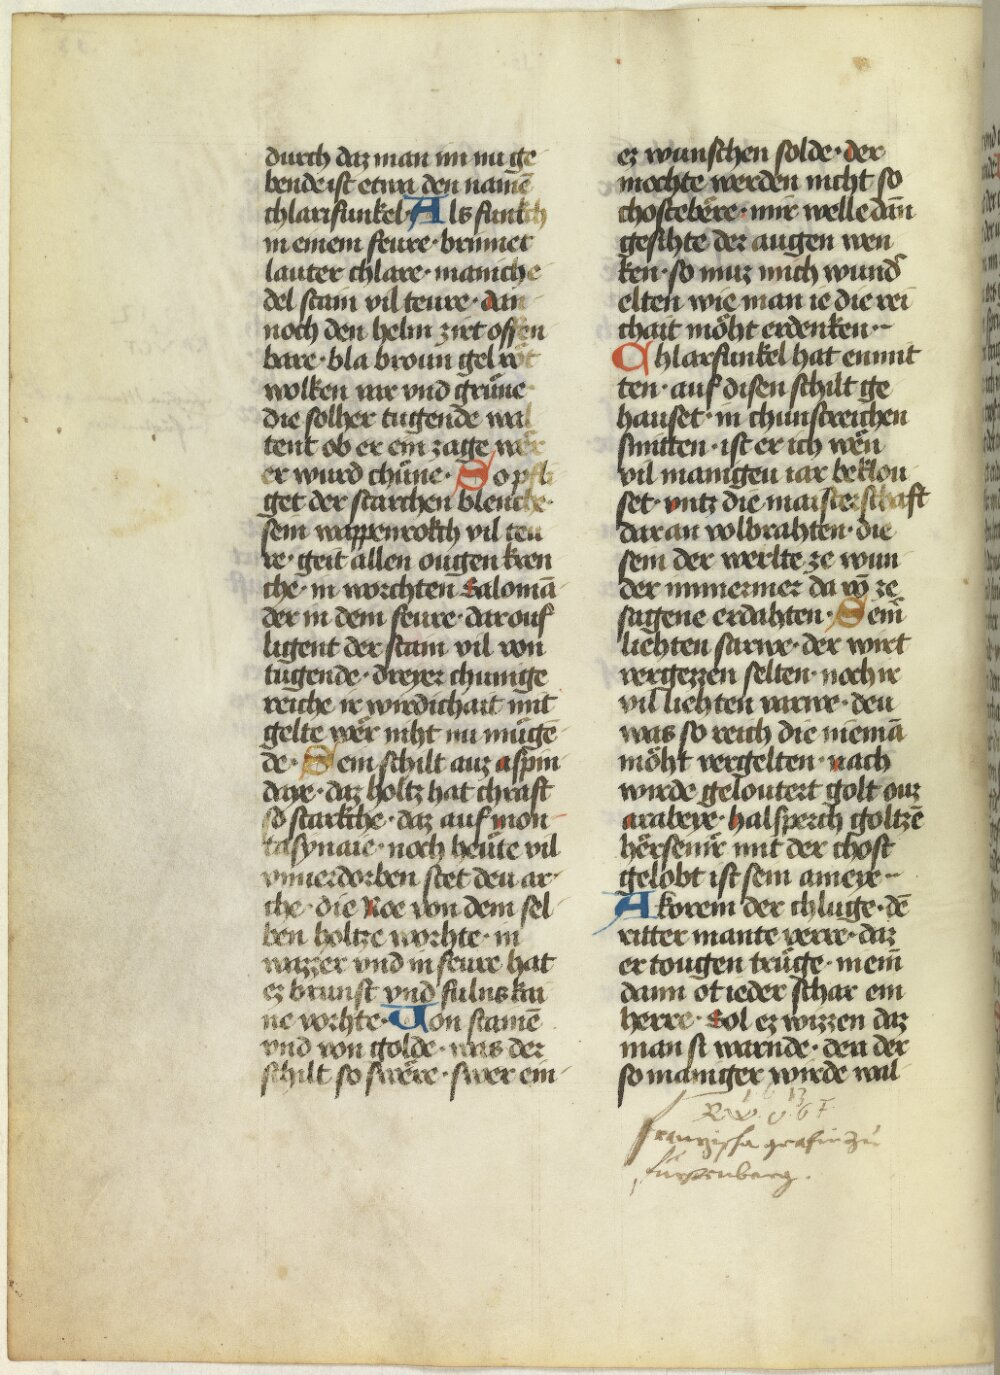 durch daz man im nu ge
bende ist etwa den namē
chlarifunkel · Als funkch
in einem feure · brinnet
lauter chlare · maniche
del stain vil teure · dan
noch den helm zirt offen
bare · bla broun gel röt
wolken var vnd grüne
die solher tugende wal
tent ob er ein zage wër
er wurd chüne · So pfli
get der starchen bleuche ·
sein wappenrokch vil teu
re · geit allen ougen kren
che · in worchten Salomā
der in dem feure · darouf
ligent der stain vil von
tugende · dreyer chunige
reiche ir wirdichait mit
gelte wër niht nu müge
de · Sein schilt auz aspin
daye · daz holtz hat chraft
so starkche · daz auf mon
tasynaie · noch heüte vil
vnuerdorben stet deu ar
che · die Noe von dem sel
ben holtze worhte · in
wazzer vnd in feure hat
ez brunst vnd fulnus kai
ne vorhte · Von stainē
vnd von golde · was der
schilt so swëre · swer ein
ez wunschen solde · der
mochte werden nicht so
chostebëre · mir welle dān
gesihte der augen wen
ken · so muz mich wund
elten wie man ie die rei
chait möht erdenken ·
Chlarfunkel hat enmit
ten · auf disen schilt ge
hauset · in chunstreichen
smitten · ist er ich wën
vil manigeu iar beklou
set · vntz die maisterschaft
daran volbrahten · die
sein der werlte ze wun
der immermer da vō ze
sagene erdahten · Sein
liehten sarwe · der wirt
vergezzen selten · noch ir
vil liehten varwe · deu
was so reich die niemā
möht vergelten · nach
wurde geloutert golt ouz
arabeye · halsperch goltzē
hërsenir mit der chost
gelobt ist sein ameye ·
Akorein der chluge · dē
ritter mante verre · daz
er tougen trüge · mein
dann ot ieder schar ein
herre · Sol ez wizzen daz
man si warnde · den der
so maniger wirde wal
franzissa grafin zu
fürstenberg.